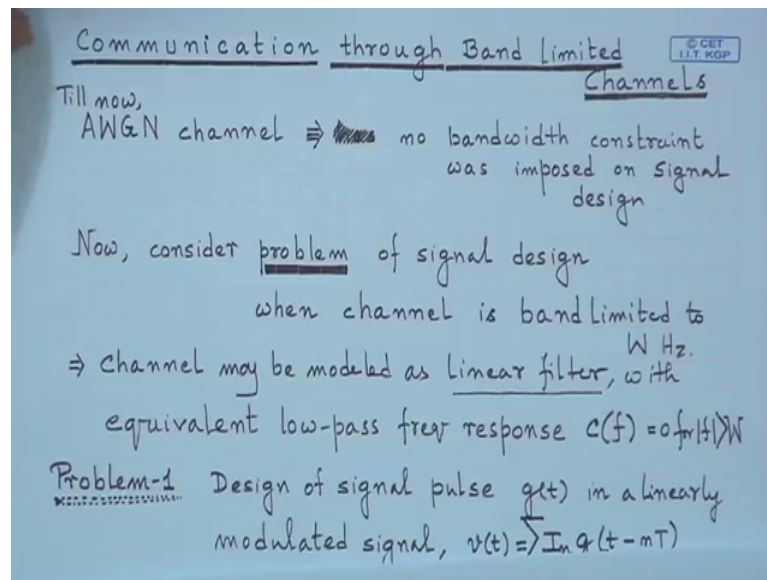 Communication through Band Limited
Channels
© CET
I.I.T. KGP
Till now,
AWGN channel ⇒ no bandwidth constraint
was imposed on signal
design
Now, consider problem of signal design
when channel is bandlimited to
W Hz.
⇒ Channel may be modeled as linear filter, with
equivalent low-pass freq response C(f) = 0 for |f|>W
Problem-1 Design of signal pulse g(t) in a linearly
modulated signal, v(t) = ∑ In g(t-nT)